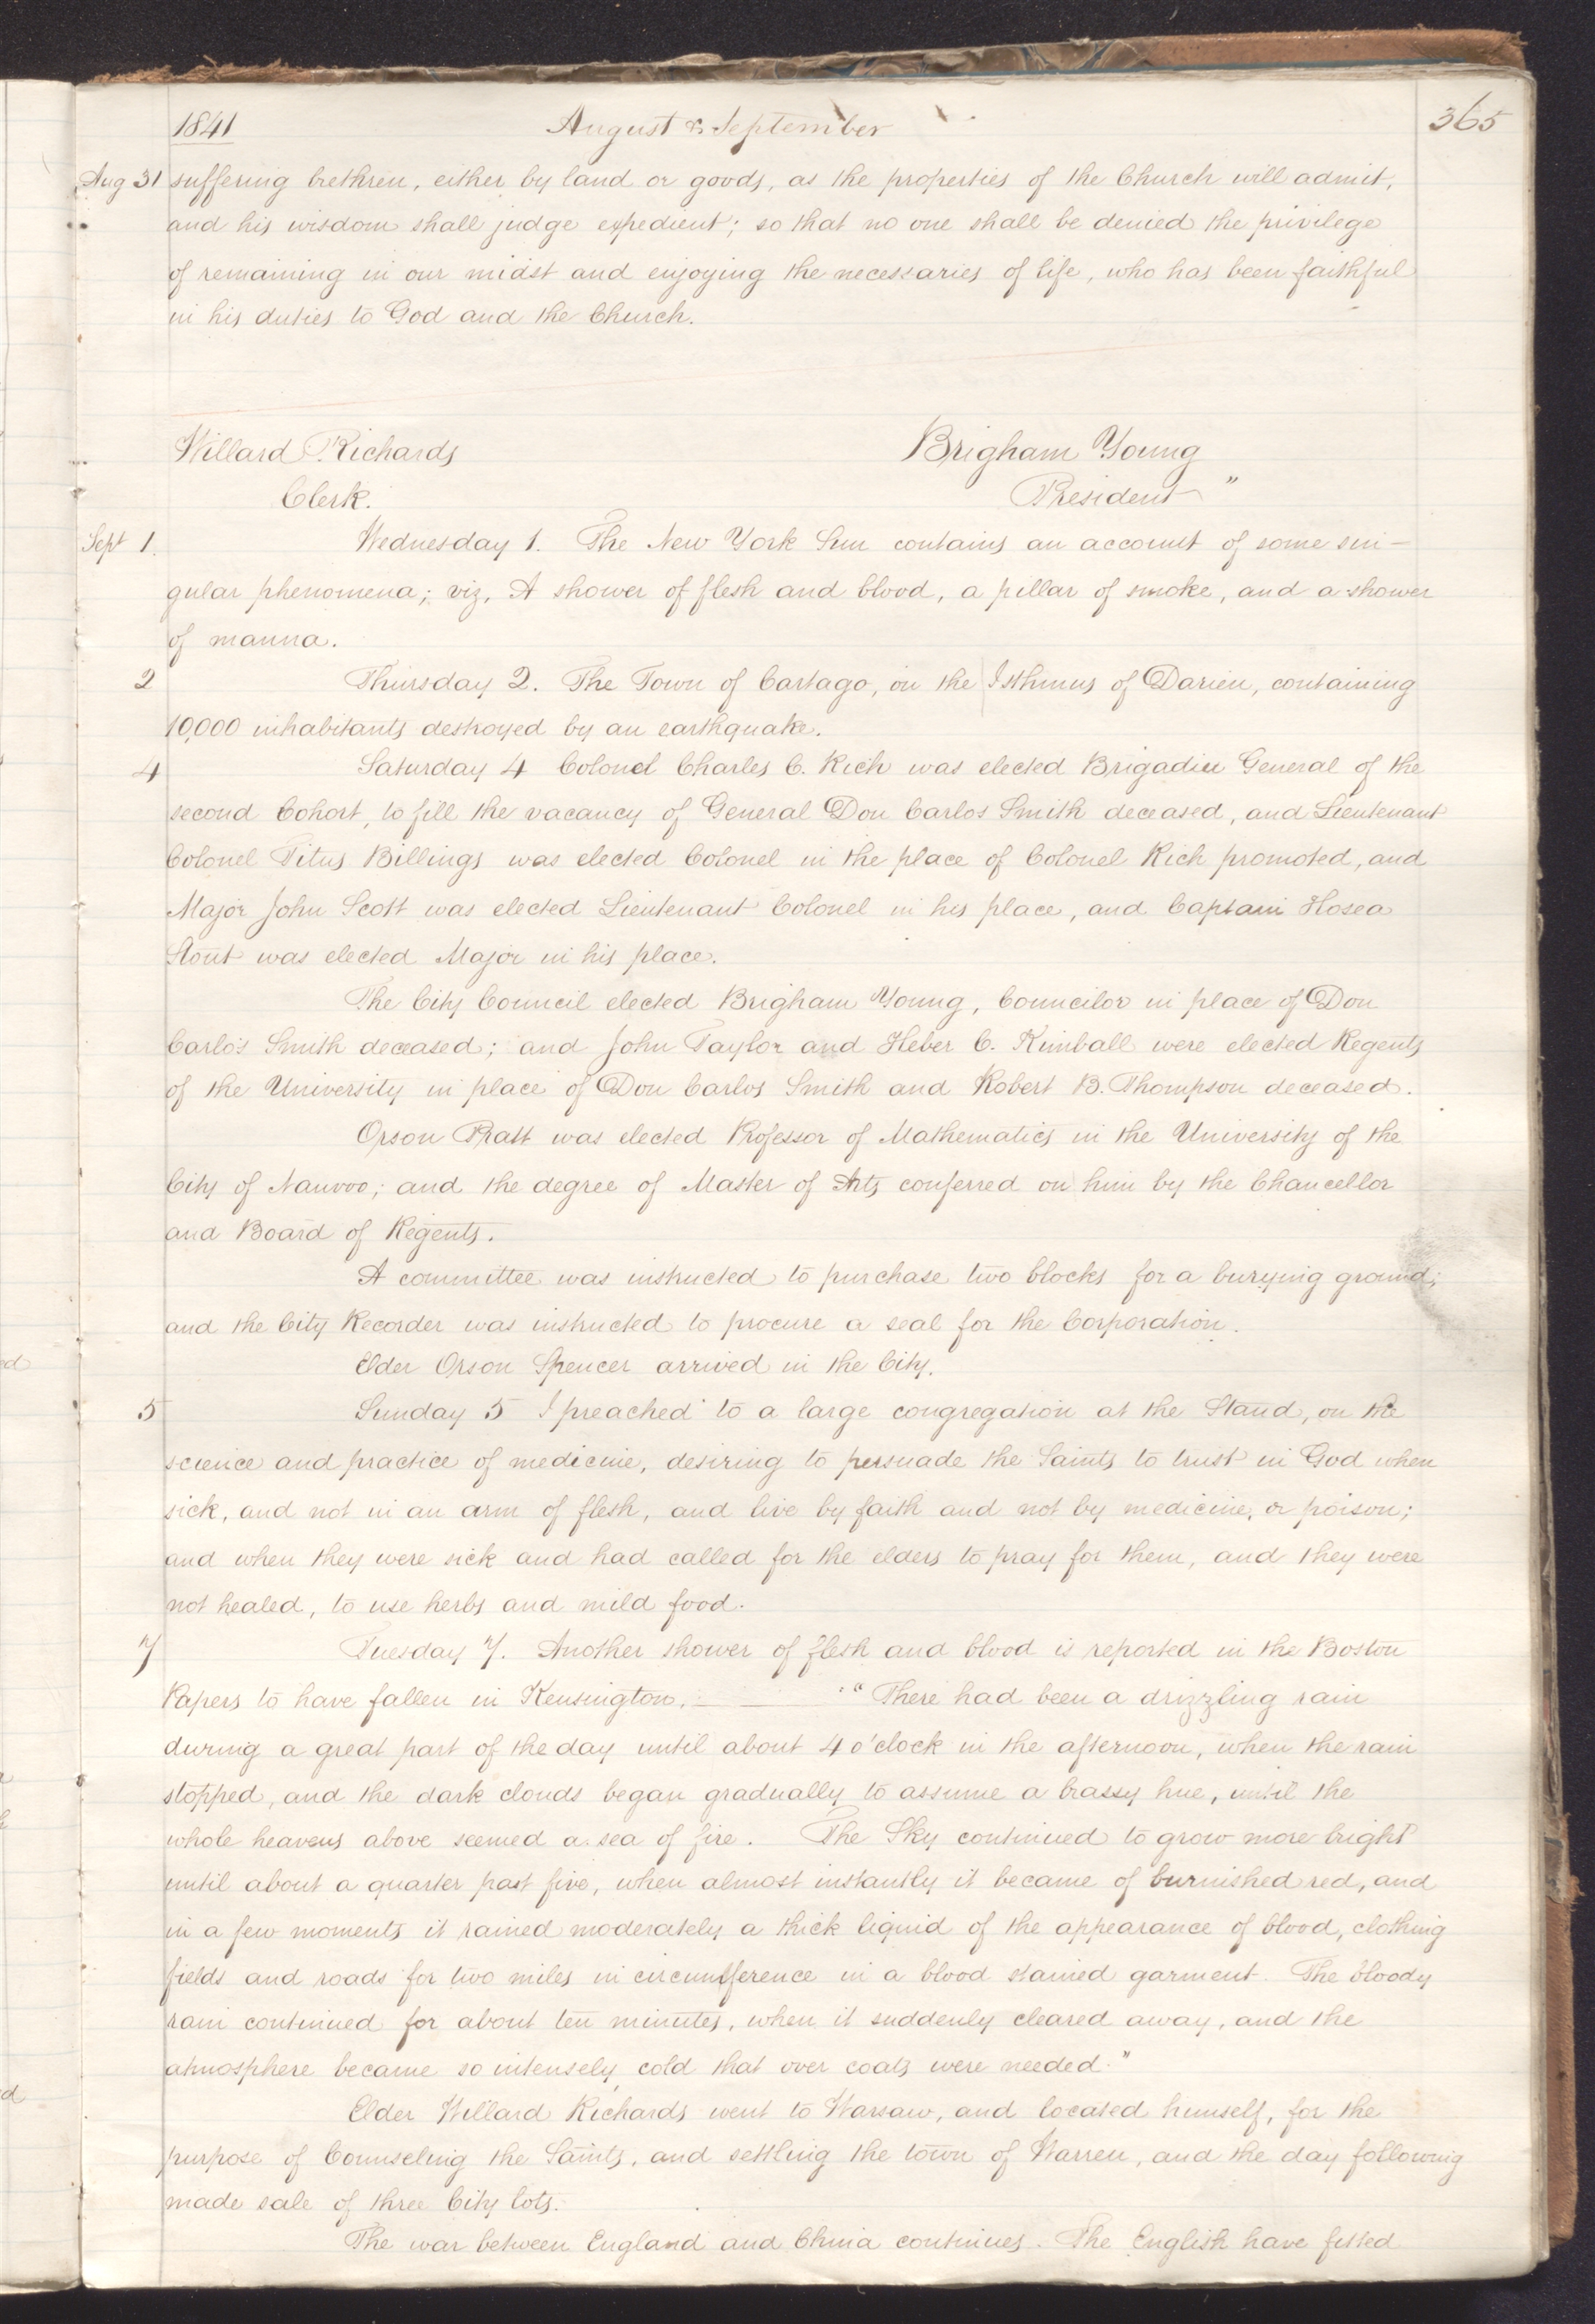 1841 August & September 365
Aug 31 suffering brethren, either by land or goods, as the properties of the Church will admit,
and his wisdom shall judge expedient; so that no one shall be denied the privilege
of remaining in our midst and enjoying the necessaries of life, who has been faithful
in his duties to God and the Church.
Willard Richards Brigham Young
Clerk. President "
Sept 1. Wednesday 1. The New York Sun contains an account of some sin-
gular phenomena; viz, A shower of flesh and blood, a pillar of smoke, and a shower
of manna.
2 Thursday 2. The Town of Cartago, on the Isthmus of Darien, containing
10,000 inhabitants destroyed by an earthquake.
4 Saturday 4 Colonel Charles C. Rich was elected Brigadier General of the
second Cohort, to fill the vacancy of General Don Carlos Smith deceased, and Lieutenant
Colonel Titus Billings was elected Colonel in the place of Colonel Rich promoted, and
Major John Scott was elected Lieutenant Colonel in his place, and Captain Hosea
Stout was elected Major in his place.
The City Council elected Brigham Young, Councilor in place of Don
Carlos Smith deceased; and John Taylor and Heber C. Kimball were elected Regents
of the University in place of Don Carlos Smith and Robert B. Thompson deceased.
Orson Pratt was elected Professor of Mathematics in the University of the
City of Nauvoo; and the degree of Master of Arts conferred on him by the Chancellor
and Board of Regents.
A committee was instructed to purchase two blocks for a burying ground;
and the City Recorder was instructed to procure a seal for the Corporation.
Elder Orson Spencer arrived in the City.
5 Sunday 5 I preached to a large congregation at the Stand, on the
science and practice of medicine, desiring to persuade the Saints to trust in God when
sick, and not in an arm of flesh, and live by faith and not by medicine, or poison;
and when they were sick and had called for the elders to pray for them, and they were
not healed, to use herbs and mild food.
7 Tuesday 7. Another shower of flesh and blood is reported in the Boston
Papers to have fallen in Kensington, — "There had been a drizzling rain
during a great part of the day until about 4 o'clock in the afternoon, when the rain
stopped, and the dark clouds began gradually to assume a brassy hue, until the
whole heavens above seemed a sea of fire. The Sky continued to grow more bright
until about a quarter past five, when almost instantly it became of burnished red, and
in a few moments it rained moderately a thick liquid of the appearance of blood, clothing
fields and roads for two miles in circumference in a blood stained garment. The bloody
rain continued for about ten minutes, when it suddenly cleared away, and the
atmosphere became so intensely cold that over coats were needed."
Elder Willard Richards went to Warsaw, and located himself, for the
purpose of Counseling the Saints, and settling the town of Warren, and the day following
made sale of three City lots.
The war between England and China continues. The English have fitted